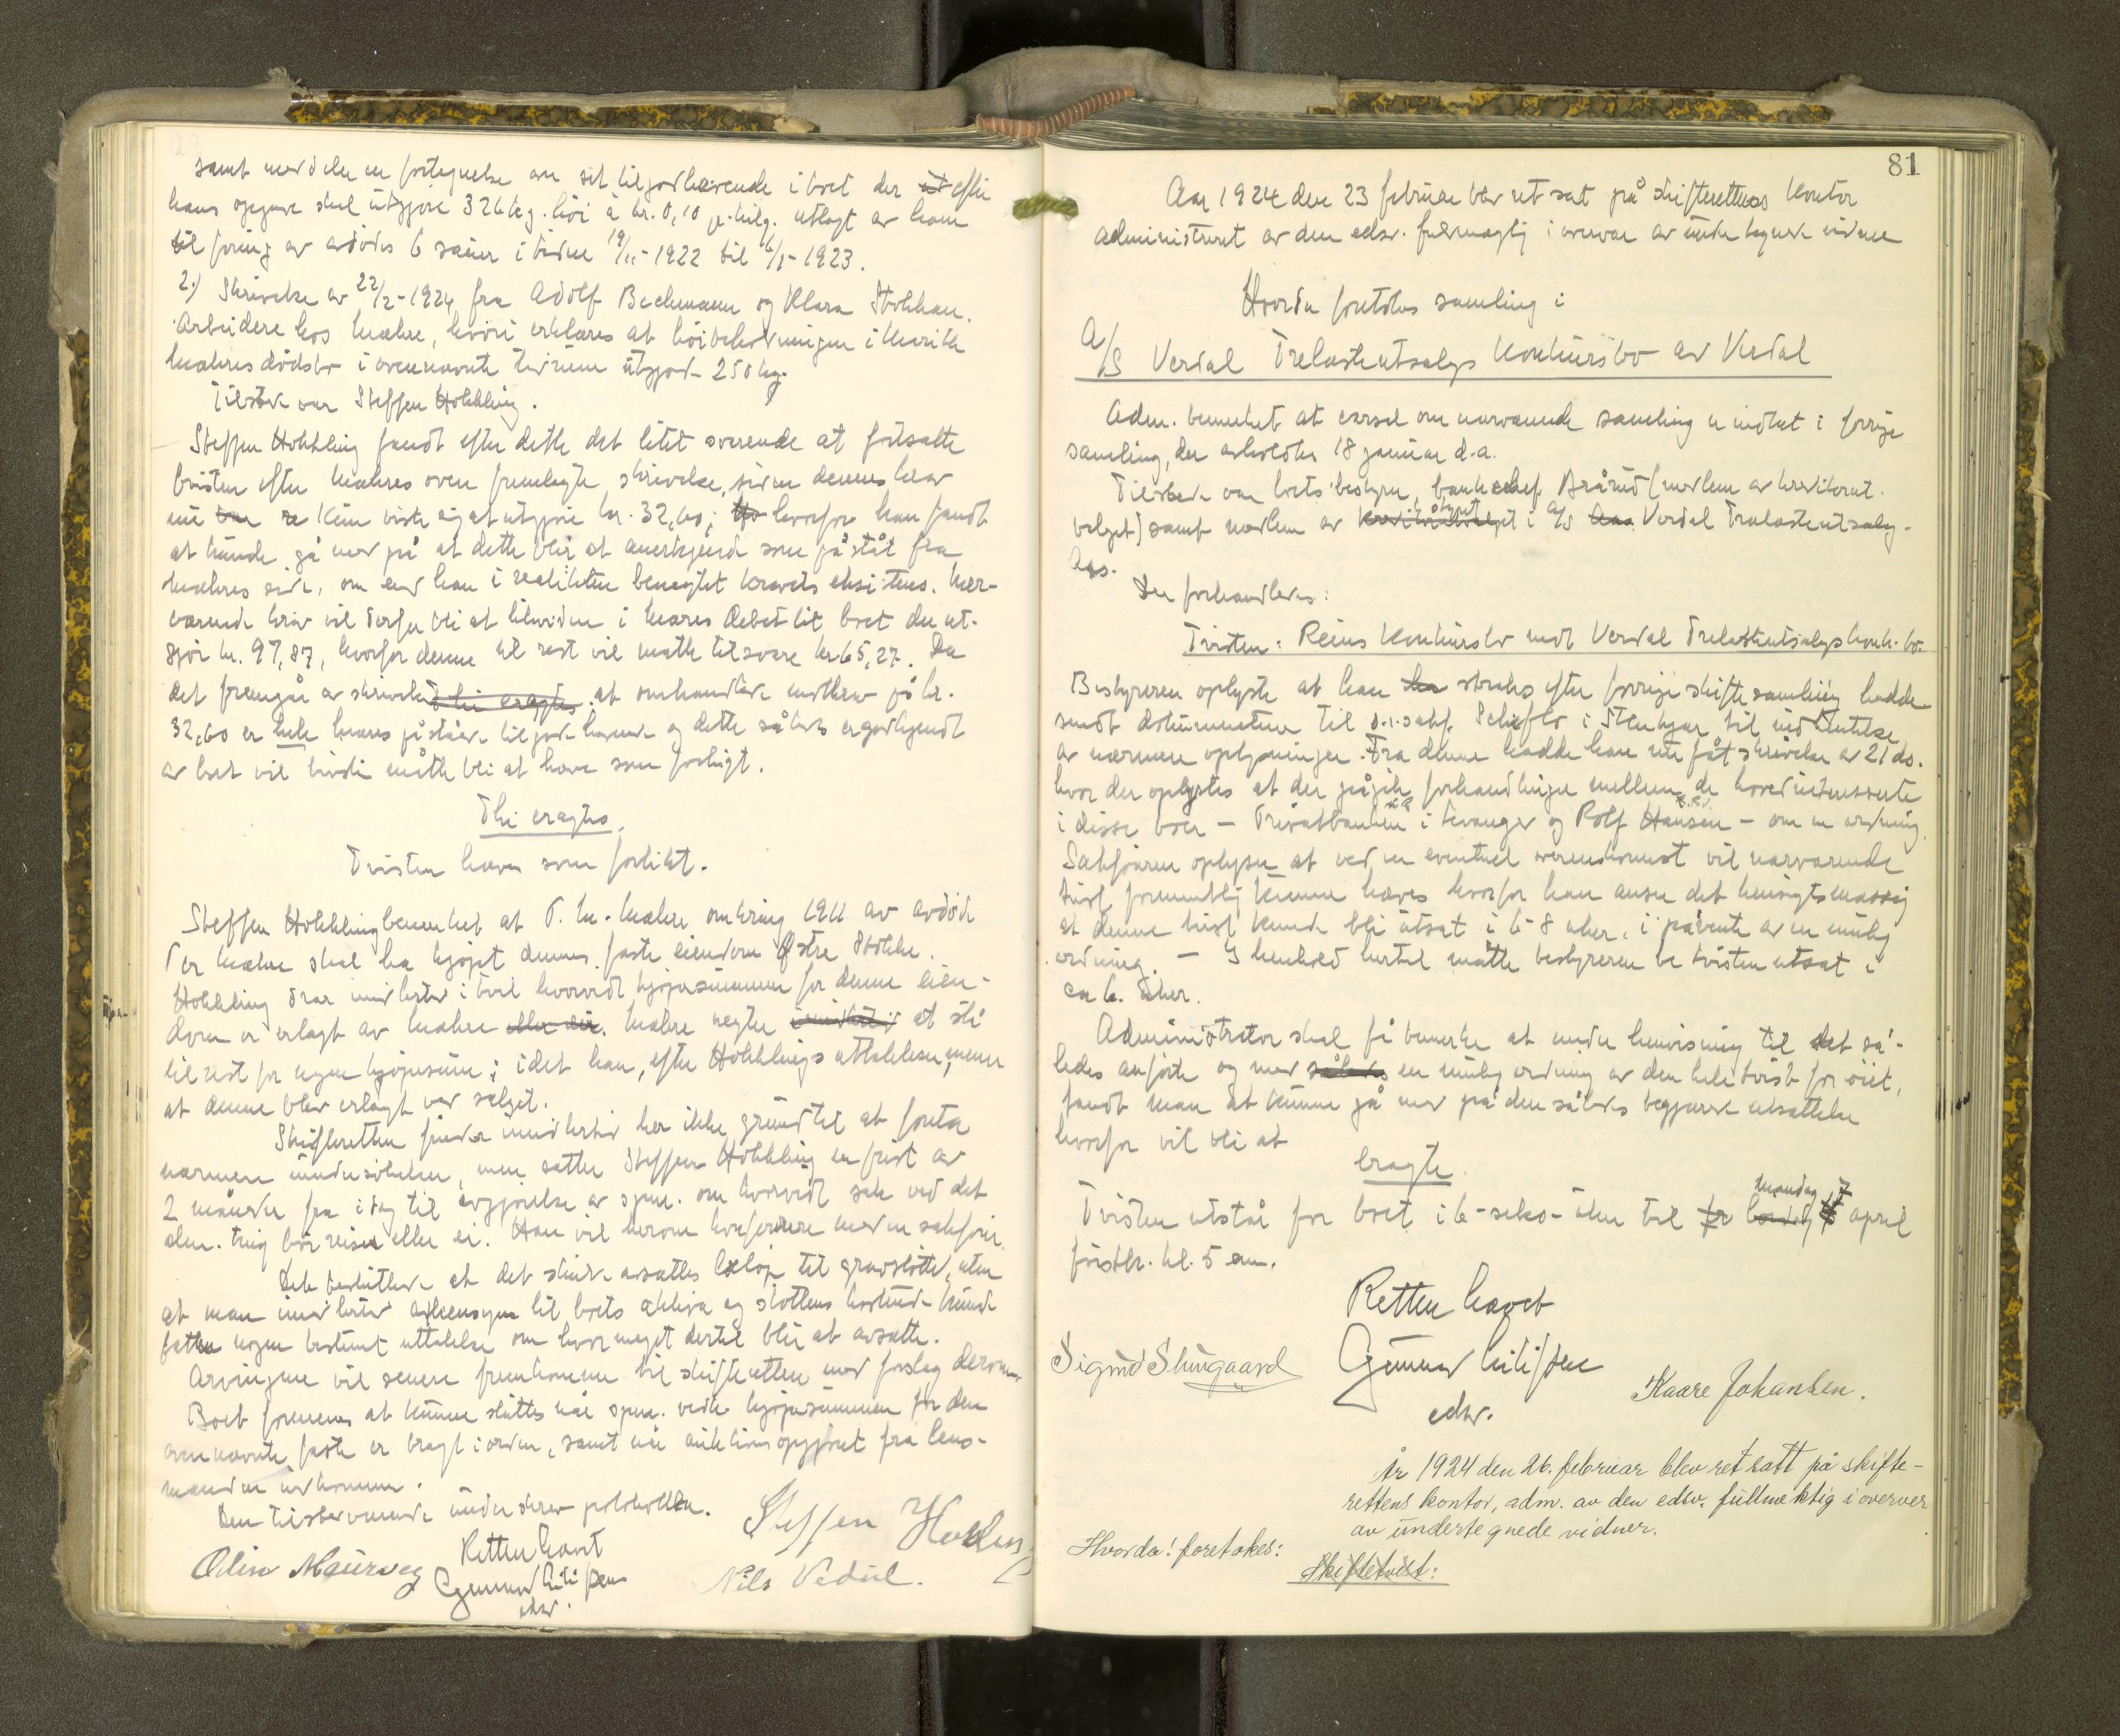 samt meddele en fortegnelse over sit tilgodehavende i boet der efter
hans opgave skal utgjøre 326 kg. höi à kr. 0,10 pr. kilog. utlagt av ham
til foring av avdödes 6 sauer i tiden 19/11-1922 til 6/1-1923.
2.) Skrivelse av 22/2-1924 fra Adolf Bachmann og Klara Stokkan.
Arbeidere hos Mæhre, hvori erklæres at höibeholdningen i Marith
Mæhres dödsbo i ovennævnte tidsrum utgjorde 250 kg.
Tilstede var Steffen Hokkling.
Steffen Hokkling fandt efter dette det litet svarende at fortsætte
tvisten efter Mæhres oven fremlagte skrivelse, siden dennes krav
nu kun viste sig at utgjöre kr. 32,60; hvorfor han fandt
at kunde gå med på at dette blir at anerkjende som påstått fra
Mæhres side, om end han i realiteten benegtet kravets eksistens. Nær-
værende krav vil derfor bli at likvidere i Mæres debet til boet der ut-
gjör kr. 97,87, hvorfor denne til rest vil måtte tilsvare kr 65,27. Da
det fremgår av skrivelsen at omhandlede motkrav på kr.
32,60 er hele Mæres påståede tilgodehavende og dette således er godkjendt
av boet vil tvisten måtte bli at hæve som forligt.
Thi eragtes.
Tvisten hæves som forlikt.
Steffen Hokkling bemerket at P. M. Mæhre omkring 1911 av avdöde
Per Mæhre skal ha kjöpt dennes faste eiendom Östre Stokke.
Hokkling drar imidlertid i tvil hvorvidt kjöpesummen for denne eien-
dom er erlagt av Mæhre. Mæhre negter at stå
til rest for nogen kjöpesum; idet han, efter Hokklings uttalelse, mener
at denne blev erlagt ved salget.
Skifteretten finder imidlertid her ikke grund til at foreta
nærmere undersökelser, men satte Steffen Hokkling en frist av
2 måneder fra idag til avgjörelse av spm. om hvorvidt sak ved det
alm. ting bör reises eller ei. Han vil herom konferere med en sakförer.
Det besluttedes at det skulde avsættes belöp til gravstötte, uten
at man imidlertid av hensyn til boets aktiva og stöttens kostende kunde
fatte nogen bestemt uttalelse om hvor meget dertil blir at avsætte.
Arvingene vil senere fremkomme til skifteretten med forslag derom.
Boet formenes at kunne sluttes når spm. vedr. kjöpesummen for den
ovennævnte faste er bragt i orden, samt når auktionsopgjöret fra lens-
manden indkommer.
Den tilstedeværende underskrev protokollen.
Retten hævet
Steffen Hokling
Odin Maurveg
Gunnar
edsv.
Nils Vedul.
81
Aar 1924 den 23 februar blev ret sat på skifterettens kontor
administreret av den edsv. fuldmægtig i overvær av undertegnede vidner
Hvorda foretokes samling i
A/S Verdal Trælastutsalgs konkursbo av Verdal
Adm. bemerket at varsel om nærværende samling er indtat i forrige
samling, der avholdtes 18 januar d.a.
Tilstede var boets bestyrer, banksjef Brårud (medlem av kreditorut-
valget) samt medlem av styret i A/S Verdal Trælastutsalg -
Aas.
Der forhandledes:
Tvisten: Reins konkursbo mot Verdal Trælastutsalgs konk. bo.
Bestyreren oplyste at han straks efter forrige skiftesamling hadde
sendt dokumentene til o.r.sakf. Scheflo i Stenkjær til indhentelse
av nærmere oplysninger. Fra denne hadde han nu fåt skrivelse av 21 ds.
hvor der oplystes at der pågik forhandlinger mellem de hovedinteresserte
i disse boer - Privatbanken i Levanger og Rolf Hansen - om en ordning.
Sakföreren oplyser at ved en eventuel overenskomst vil nærværende
tvist formentlig kunne hæves hvorfor han anser det hensigtsmæssig
at denne tvist kunde bli utsat i 6-8 uker, i påvente av en mulig
ordning. - I henhold hertil måtte bestyreren be tvisten utsat i
ca 6. uker.
Administrator skal få bemerke at under henvisning til det så-
ledes anförte og med en mulig ordning av den hele tvist for öiet,
fandt man at kunne gå med på den således begjærte utsættelse
hvorfor vil bli at
eragte.
Tvisten utstår for boet i 6-seks-uker til mandag 7 april
förstk. kl. 5 em.
Retten hævet
Sigurd Slungaard
Gunnar
edsv.
Kaare Johansen.
År 1924 den 26. februar blev ret satt på skifte-
rettens kontor, adm. av den edsv. fullmektig i overver
av undertegnede vidner.
Hvorda! foretokes:
Skiftetvist: